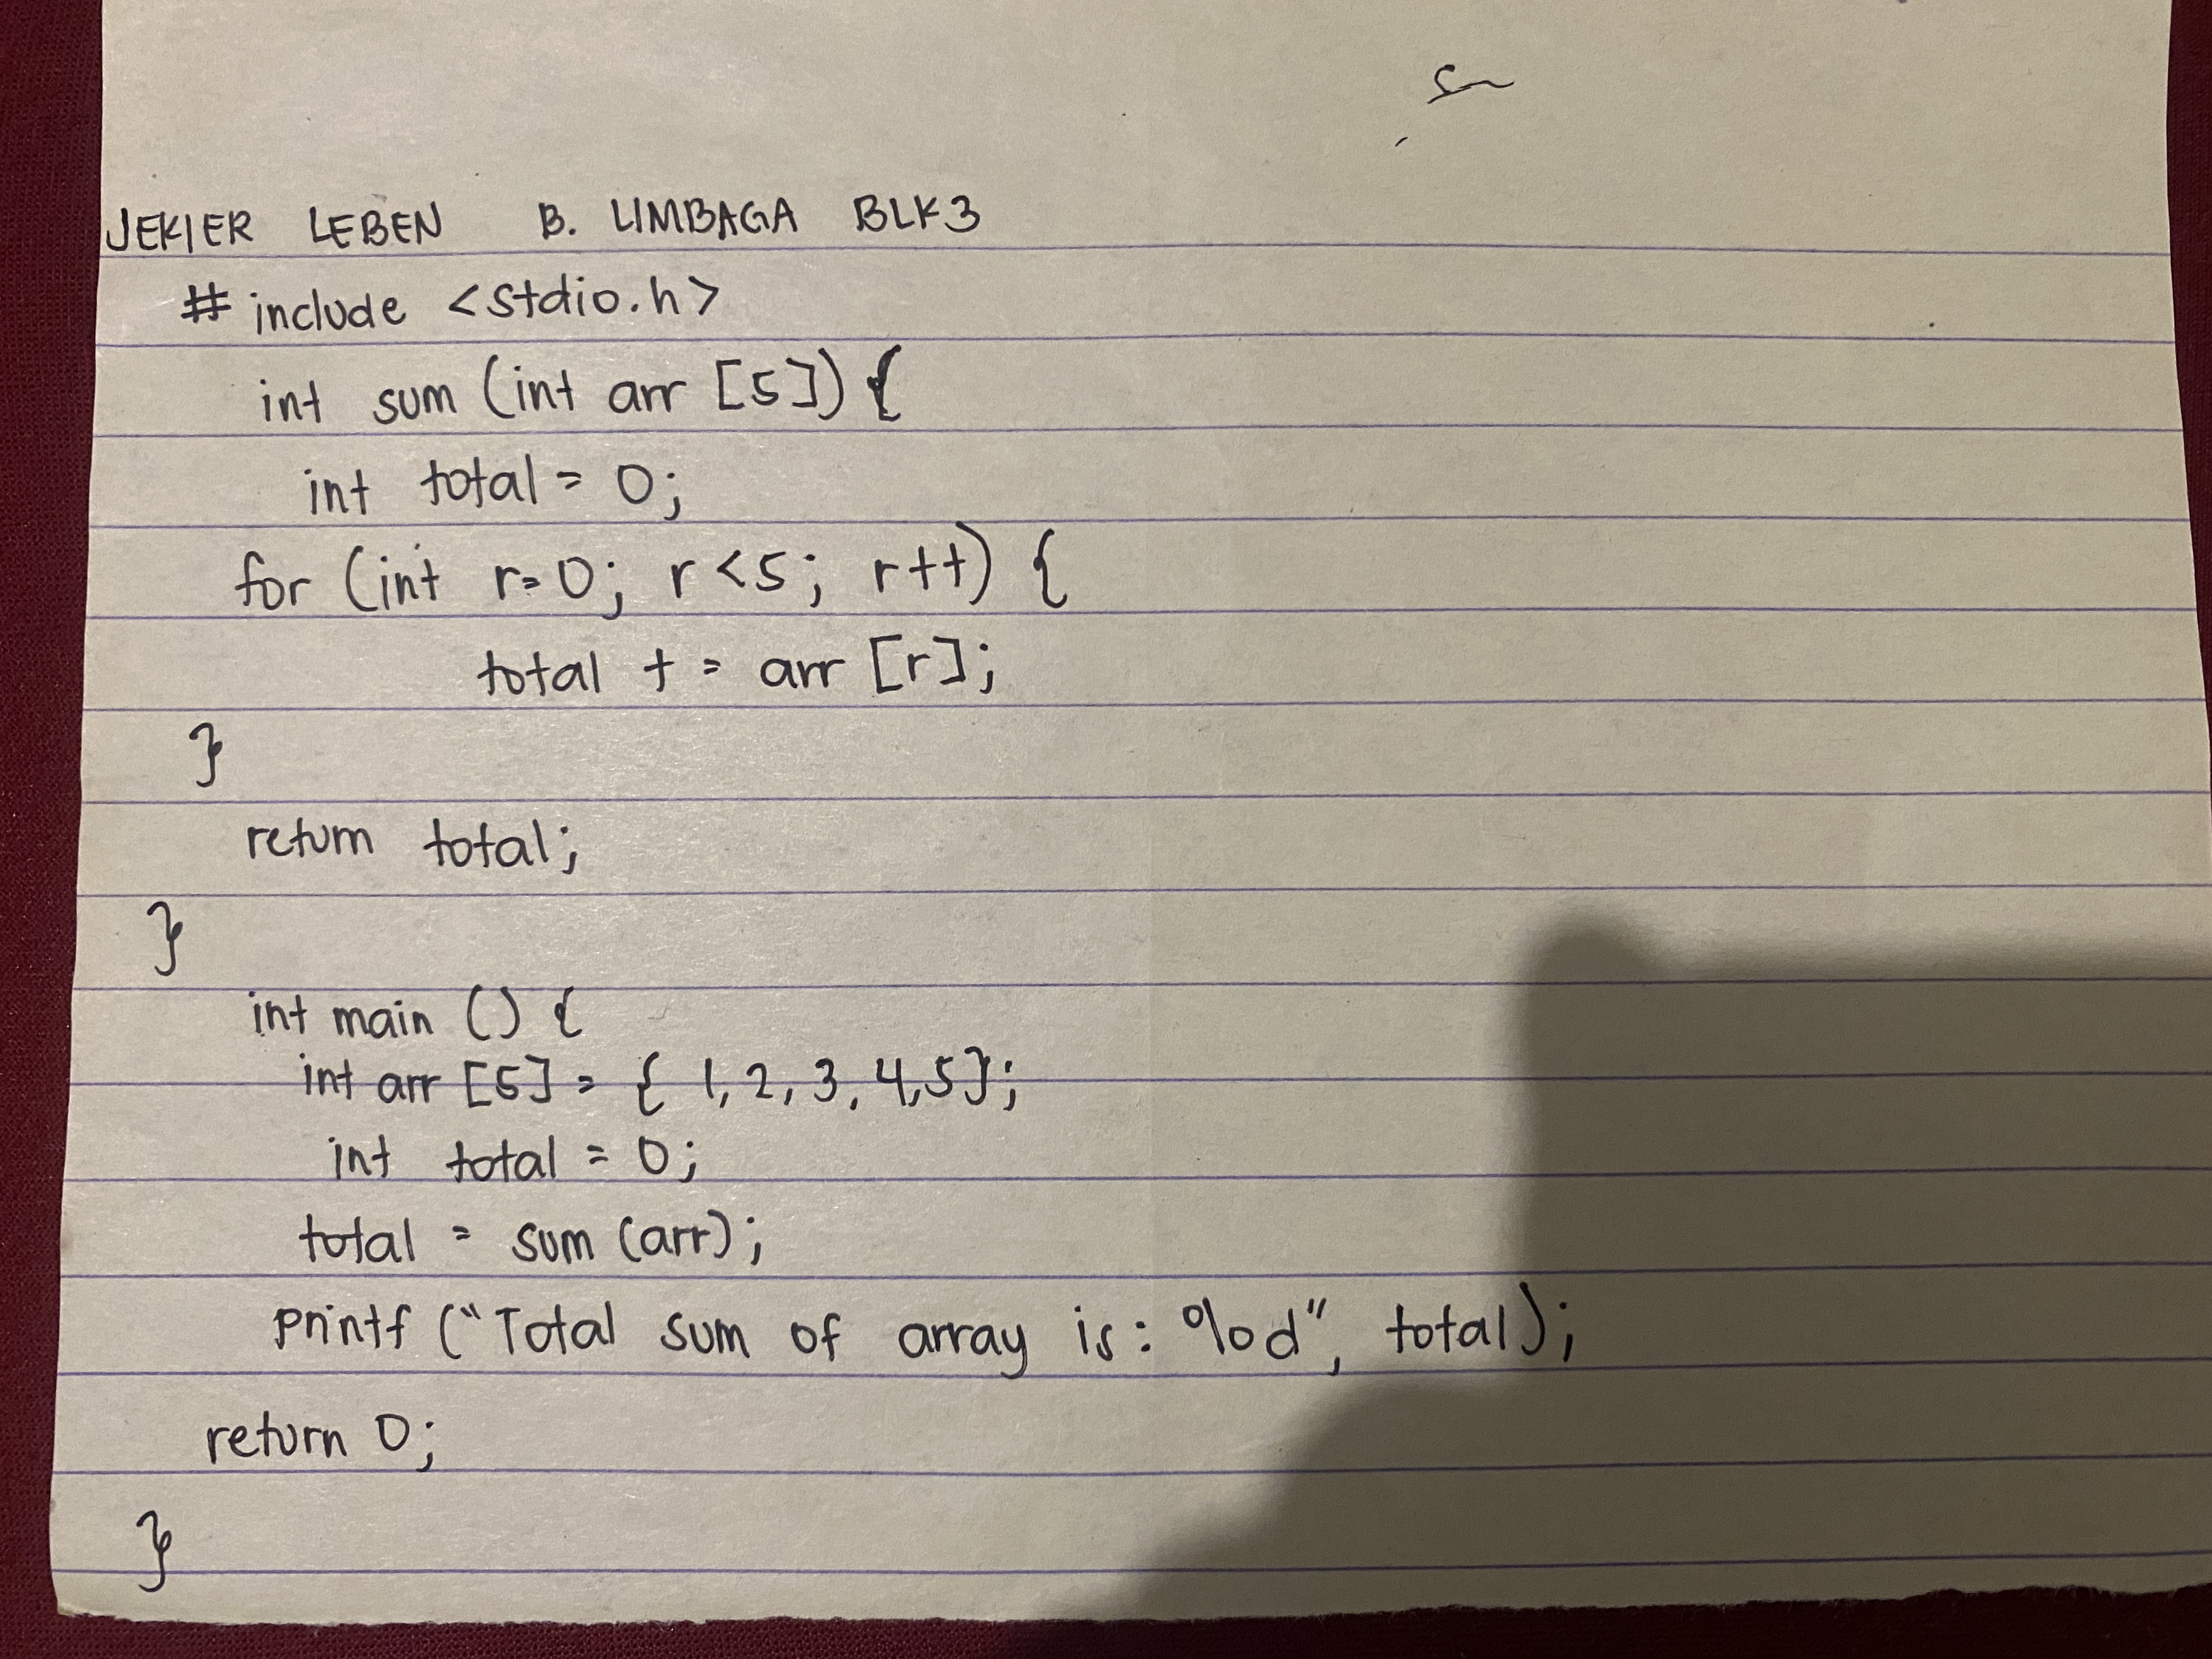 JEKIER LEBEN B. LIMBAGA BLK3
# include <stdio.h>
int sum (int arr [5]) {
int total = 0;
for (int r=0; r<5; r++) {
total + = arr [r];
}
return total;
}
int main () {
int arr [5] = { 1, 2, 3, 4,5};
int total = 0;
total = sum (arr);
printf ("Total sum of array is: %d", total);
return 0;
}